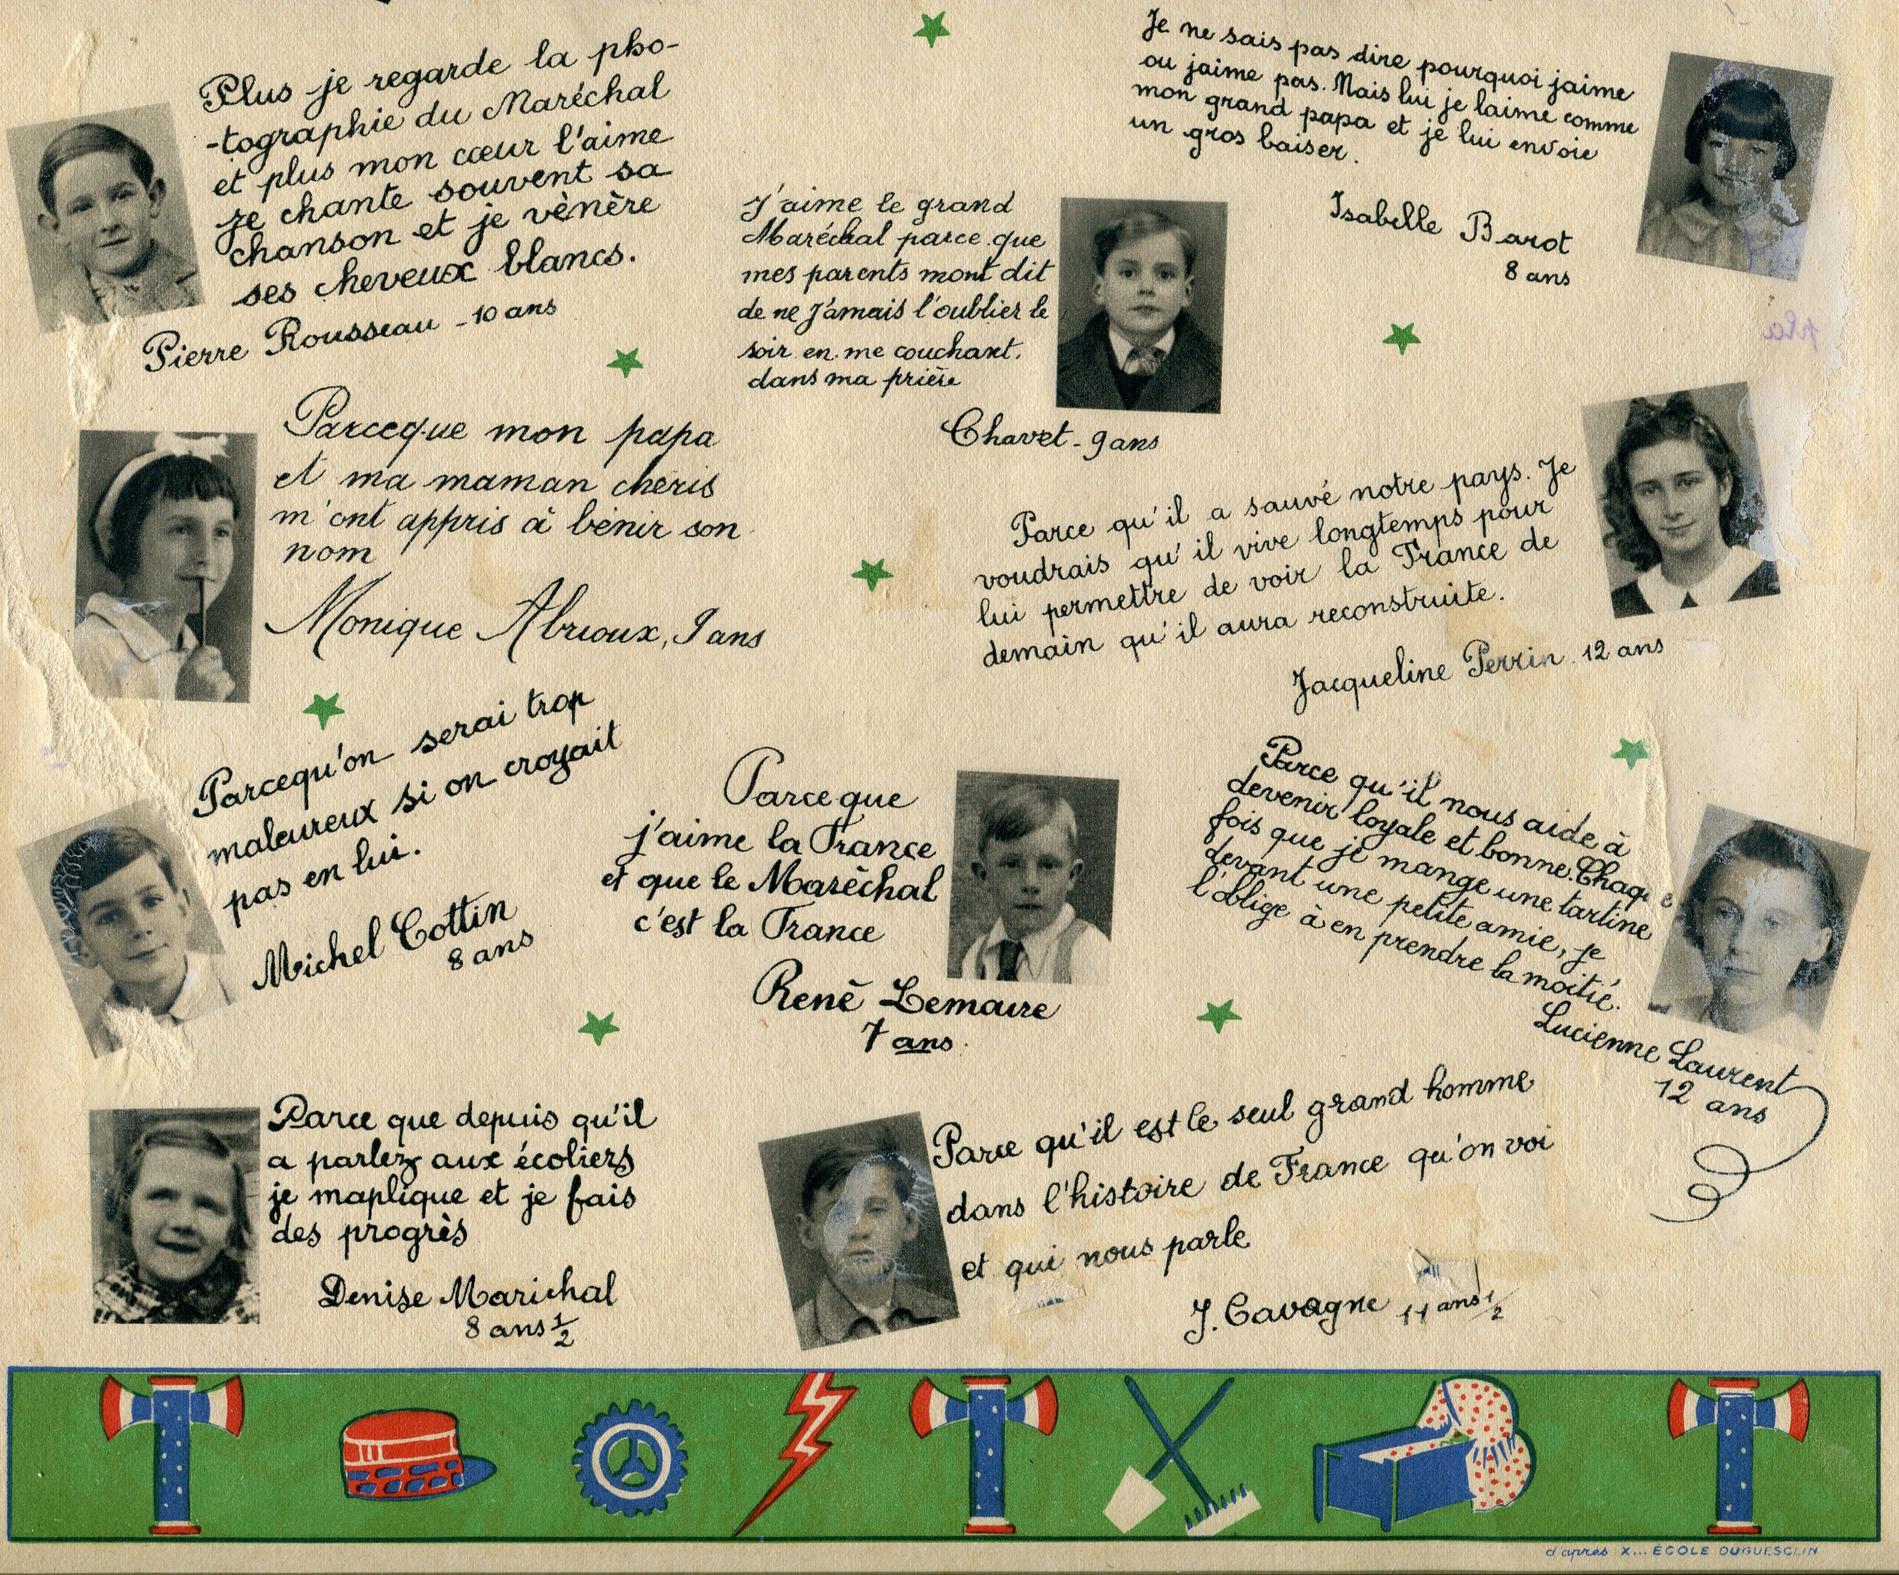 Plus je regarde la pho-
-tographie du Maréchal
et plus mon cœur l'aime
je chante souvent sa
chanson et je vènère
ses cheveux blancs.
Pierre Rousseau - 10 ans
J'aime le grand
Maréchal parce que
mes parents mont dit
de ne J'amais l'oublier le
soir en me couchant.
dans ma prière
Chavet - 9 ans
Je ne sais pas dire pourquoi jaime
ou jaime pas. Mais lui je laime comme
mon grand papa et je lui envoie
un gros baiser.
Isabelle Barot
8 ans
Parceque mon papa
et ma maman chéris
m'ont appris à bénir son
nom
Monique Abrioux, 9 ans
Parce qu'il a sauvé notre pays. Je
voudrais qu'il vive longtemps pour
lui permettre de voir la France de
demain qu'il aura reconstruite.
Jacqueline Perrin. 12 ans
Parcequ'on serai trop
maleureux si on croyait
pas en lui.
Michel Cottin
8 ans
Parceque
j'aime la France
et que le Maréchal
c'est la France
René Lemaire
7 ans.
Parce qu'il nous aide à
devenir loyale et bonne. Chaque
fois que je mange une tartine
devant une petite amie, je
l'oblige à en prendre la moitié.
Lucienne Laurent
12 ans
Parce que depuis qu'il
a parlez aux écoliers
je maplique et je fais
des progrès
Denise Marichal
8 ans ½
Parce qu'il est le seul grand homme
dans l'histoire de France qu'on voi
et qui nous parle
J. Cavagne 11 ans ½
d'après X... ÉCOLE DUGUESCLIN